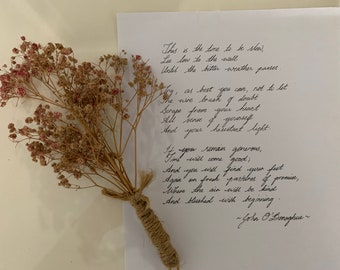 This is the time to be slow,
Lie low to the wall
Until the bitter weather passes.
Try, as best you can, not to let
The wire brush of doubt
Scrape from your heart
All sense of yourself
And your hesitant light.
If you remain generous,
Time will come good;
And you will find your feet
Again on fresh pastures of promise,
Where the air will be kind
And blushed with beginning.
~John O'Donohue~